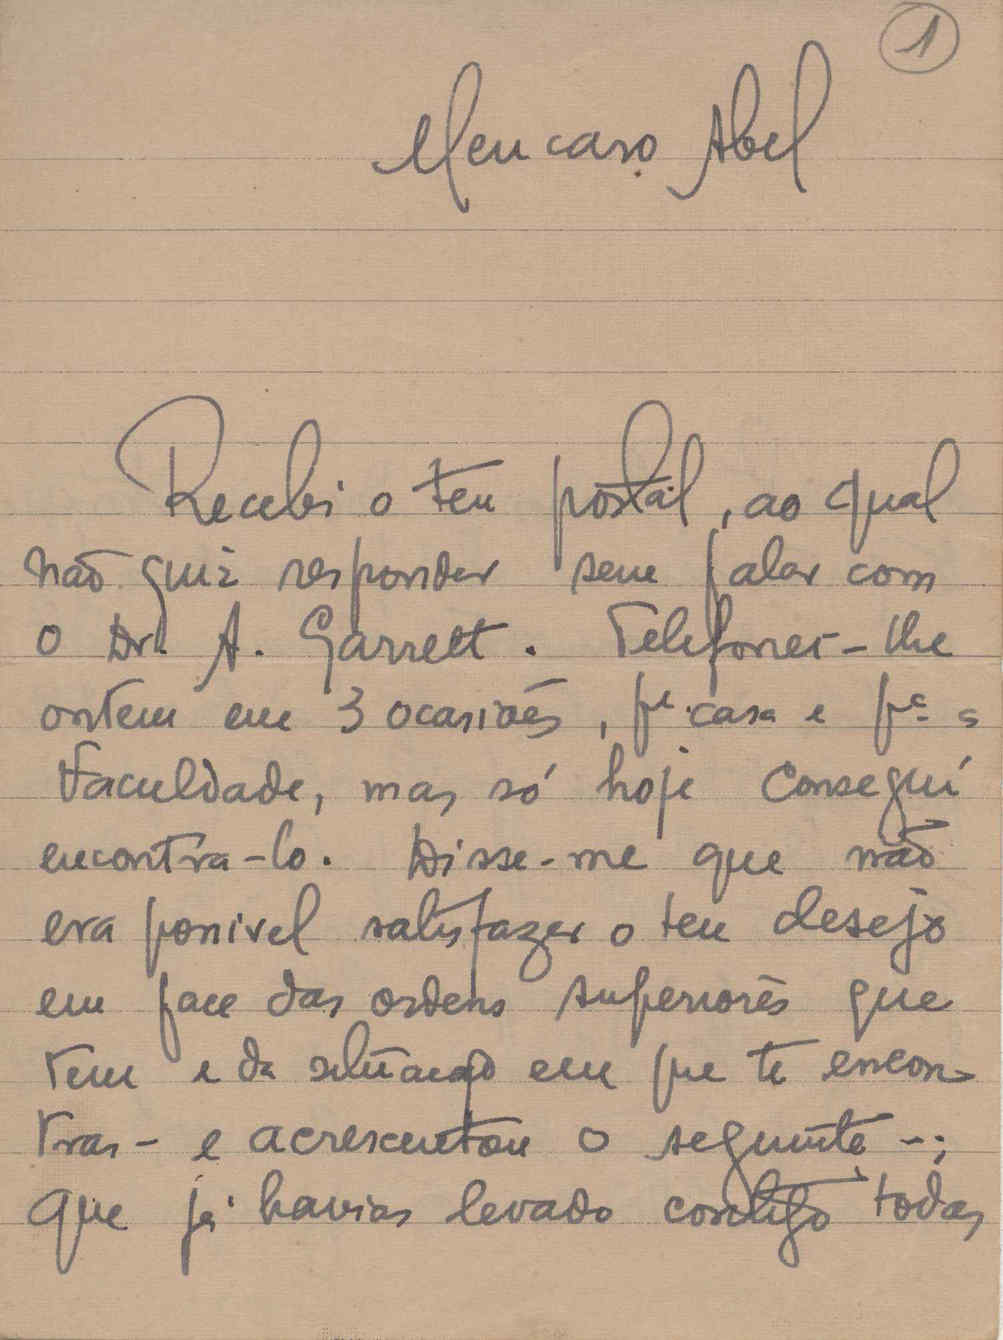 1
Meu caro Abel
Recebi o teu postal, ao qual
não quiz responder sem falar com
o Dr. A. Garrett. Telefonei-lhe
ontem em 3 ocasiões, pª casa e pª a
Faculdade, mas só hoje consegui
encontra-lo. Disse-me que não
era possivel satisfazer o teu desejo
em face das ordens superiores que
tem e da situação em que te encon-
tras - e acrescentou o seguinte -:
que já havias levado contigo todas